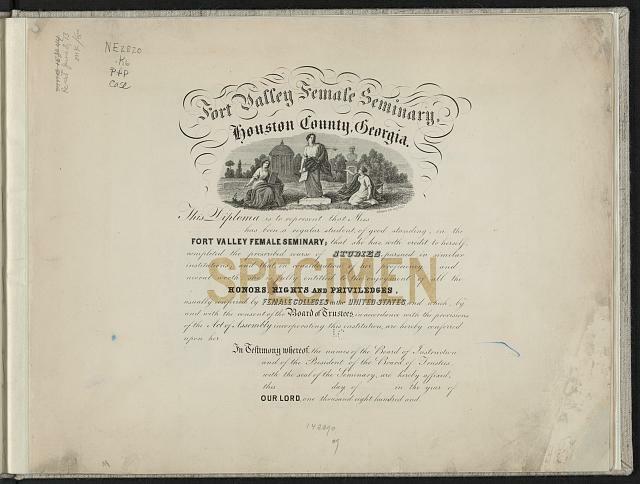 NE2820
.K6
P&P
Case
Fort Valley Female Seminary,
Houston County, Georgia.
This Diploma is to represent that Miss
has been a regular student, of good standing, in the
FORT VALLEY FEMALE SEMINARY; that she has with credit to herself,
completed the prescribed course of STUDIES, pursued in similar
institutions and that, in consideration of her proficiency and
moral worth, she is fully entitled to the enjoyment of all the
SPECIMEN
HONORS, RIGHTS AND PRIVILEDGES,
usually conferred by FEMALE COLLEGES in the UNITED STATES, and which, by
and with the consent of the Board of Trustees, in accordance with the provisions
of the Act of Assembly incorporating this institution, are hereby conferred
upon her.
In Testimony whereof, the names of the Board of Instruction
and of the President of the Board of Trustees,
with the seal of the Seminary, are hereby affixed,
this day of in the year of
OUR LORD, one thousand eight hundred and